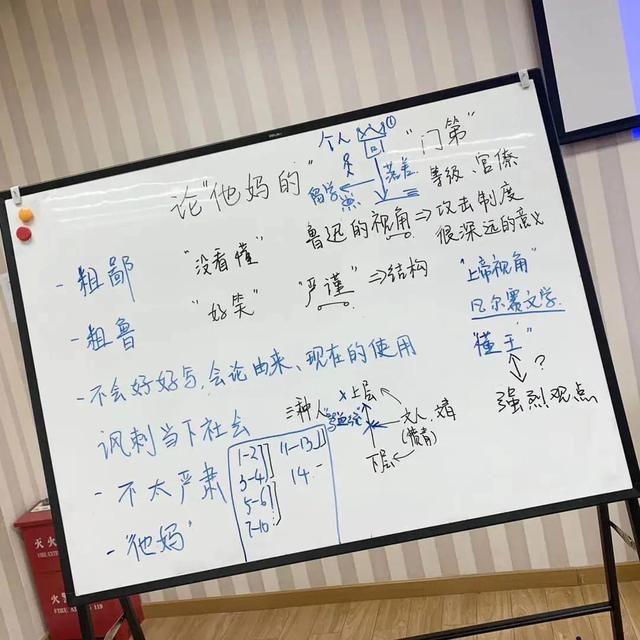 论"他妈的"
个人 ①
留学 落差
"门第"
等级、官僚
鲁迅的视角⇒攻击制度
很深远的意义
-粗鄙
"没看懂"
-粗鲁
"好笑"
"严谨"⇒结构
"上帝视角"
凡尔赛文学
"懂王"
?
强烈观点
-不会好好写,会论由来、现在的使用
讽刺当下社会
三种人
x上层
文人、
(愤青)
下层
-不太严肃
1-2
3-4
5-6
7-10
11-13
14-
-"他妈"
灭火